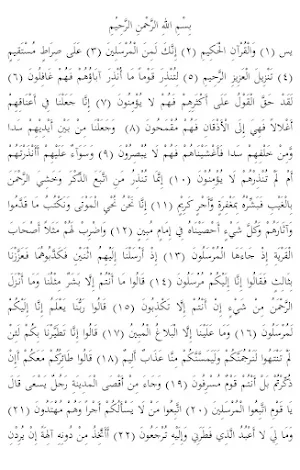 بِسْمِ اللَّهِ الرَّحْمَنِ الرَّحِيْمِ
يس (١) وَالْقُرْآنِ الْحَكِيمِ (٢) إِنَّكَ لَمِنَ الْمُرْسَلِينَ (٣) عَلَى صِرَاطٍ مُسْتَقِيمٍ
(٤) تَنْزِيلَ الْعَزِيزِ الرَّحِيمِ (٥) لِتُنْذِرَ قَوْمًا مَا أُنْذِرَ آبَاؤُهُمْ فَهُمْ غَافِلُونَ (٦)
لَقَدْ حَقَّ الْقَوْلُ عَلَى أَكْثَرِهِمْ فَهُمْ لَا يُؤْمِنُونَ (٧) إِنَّا جَعَلْنَا فِي أَعْنَاقِهِمْ
أَغْلَالًا فَهِيَ إِلَى الْأَذْقَانِ فَهُمْ مُقْمَحُونَ (٨) وَجَعَلْنَا مِنْ بَيْنِ أَيْدِيهِمْ سدا
وَمِنْ خَلْفِهِمْ سدا فَأَغْشَيْنَاهُمْ فَهُمْ لَا يُبْصِرُونَ (٩) وَسَوَاءٌ عَلَيْهِمْ أَأَنْذَرْتَهُمْ
أَمْ لَمْ تُنْذِرْهُمْ لَا يُؤْمِنُونَ (١٠) إِنَّمَا تُنْذِرُ مَنِ اتَّبَعَ الذِّكْرَ وَخَشِيَ الرَّحْمَنَ
بِالْغَيْبِ فَبَشِّرْهُ بِمَغْفِرَةٍ وَأَجْرٍ كَرِيمٍ (١١) إِنَّا نَحْنُ نُحْيِي الْمَوْتَى وَنَكْتُبُ مَا قَدَّمُوا
وَآثَارَهُمْ وَكُلَّ شَيْءٍ أَحْصَيْنَاهُ فِي إِمَامٍ مُبِينٍ (١٢) وَاضْرِبْ لَهُمْ مَثَلًا أَصْحَابَ
الْقَرْيَةِ إِذْ جَاءَهَا الْمُرْسَلُونَ (١٣) إِذْ أَرْسَلْنَا إِلَيْهِمُ اثْنَيْنِ فَكَذَّبُوهُمَا فَعَزَّزْنَا
بِثَالِثٍ فَقَالُوا إِنَّا إِلَيْكُمْ مُرْسَلُونَ (١٤) قَالُوا مَا أَنْتُمْ إِلَّا بَشَرٌ مِثْلُنَا وَمَا أَنْزَلَ
الرَّحْمَنُ مِنْ شَيْءٍ إِنْ أَنْتُمْ إِلَّا تَكْذِبُونَ (١٥) قَالُوا رَبُّنَا يَعْلَمُ إِنَّا إِلَيْكُمْ
لَمُرْسَلُونَ (١٦) وَمَا عَلَيْنَا إِلَّا الْبَلَاغُ الْمُبِينُ (١٧) قَالُوا إِنَّا تَطَيَّرْنَا بِكُمْ لَئِنْ
لَمْ تَنْتَهُوا لَنَرْجُمَنَّكُمْ وَلَيَمَسَّنَّكُمْ مِنَّا عَذَابٌ أَلِيمٌ (١٨) قَالُوا طَائِرُكُمْ مَعَكُمْ أَئِنْ
ذُكِّرْتُمْ بَلْ أَنْتُمْ قَوْمٌ مُسْرِفُونَ (١٩) وَجَاءَ مِنْ أَقْصَى الْمَدِينَةِ رَجُلٌ يَسْعَى قَالَ
يَا قَوْمِ اتَّبِعُوا الْمُرْسَلِينَ (٢٠) اتَّبِعُوا مَنْ لَا يَسْأَلُكُمْ أَجْرًا وَهُمْ مُهْتَدُونَ (٢١)
وَمَا لِيَ لَا أَعْبُدُ الَّذِي فَطَرَنِي وَإِلَيْهِ تُرْجَعُونَ (٢٢) أَأَتَّخِذُ مِنْ دُونِهِ آلِهَةً إِنْ يُرِدْنِ